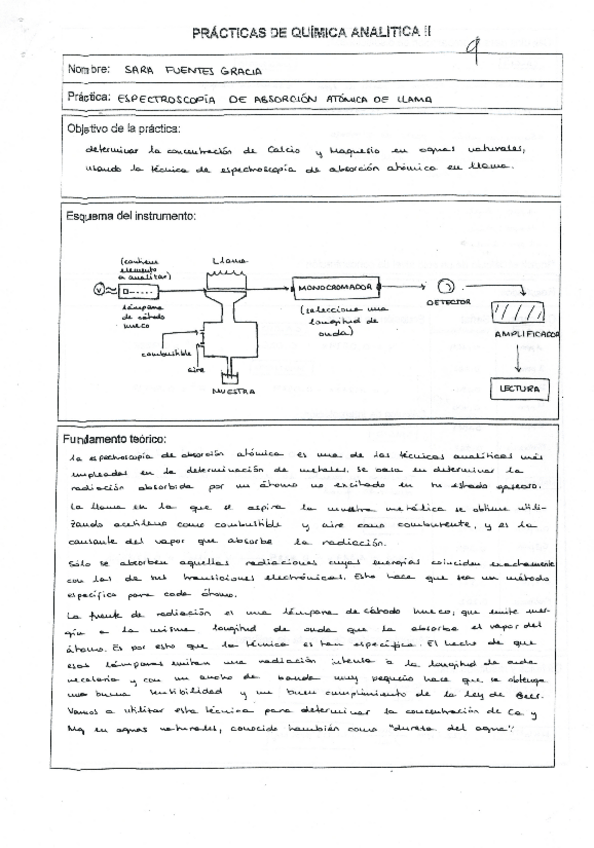 PRÁCTICAS DE QUÍMICA ANALITICA II
9
Nombre: SARA FUENTES GRACIA
Práctica: ESPECTROSCOPÍA DE ABSORCIÓN ATÓMICA DE LLAMA
Objetivo de la práctica:
determinar la concentración de Calcio y Magnesio en aguas naturales,
usando la técnica de espectroscopía de absorción atómica en llama.
Esquema del instrumento:
(contiene
elemento
a analizar)
Llama
V
MONOCROMADOR
DETECTOR
lámpara
de cátodo
hueco
(selecciona una
longitud de
onda)
AMPLIFICADOR
combustible
aire
MUESTRA
LECTURA
Fundamento teórico:
la espectroscopía de absorción atómica es una de las técnicas analíticas más
empleadas en la determinación de metales. Se basa en determinar la
radiación absorbida por un átomo no excitado en su estado gaseoso.
La llama en la que se aspira la muestra metálica se obtiene utili-
zando acetileno como combustible y aire como comburente, y es la
causante del vapor que absorbe la radiación.
Sólo se absorben aquellas radiaciones cuyas energías coinciden exactamente
con las de sus transiciones electrónicas. Esto hace que sea un método
específico para cada átomo.
La fuente de radiación es una lámpara de cátodo hueco, que emite ener-
gía a la misma longitud de onda que la absorbe el vapor del
átomo. Es por esto que la técnica es tan específica. El hecho de que
esas lámparas emitan una radiación intensa a la longitud de onda
necesaria y con un ancho de banda muy pequeño hace que se obtenga
una buena sensibilidad y un buen cumplimiento de la ley de Beer.
Vamos a utilizar esta técnica para determinar la concentración de Ca y
Mg en aguas naturales, conocido también como "dureza del agua".